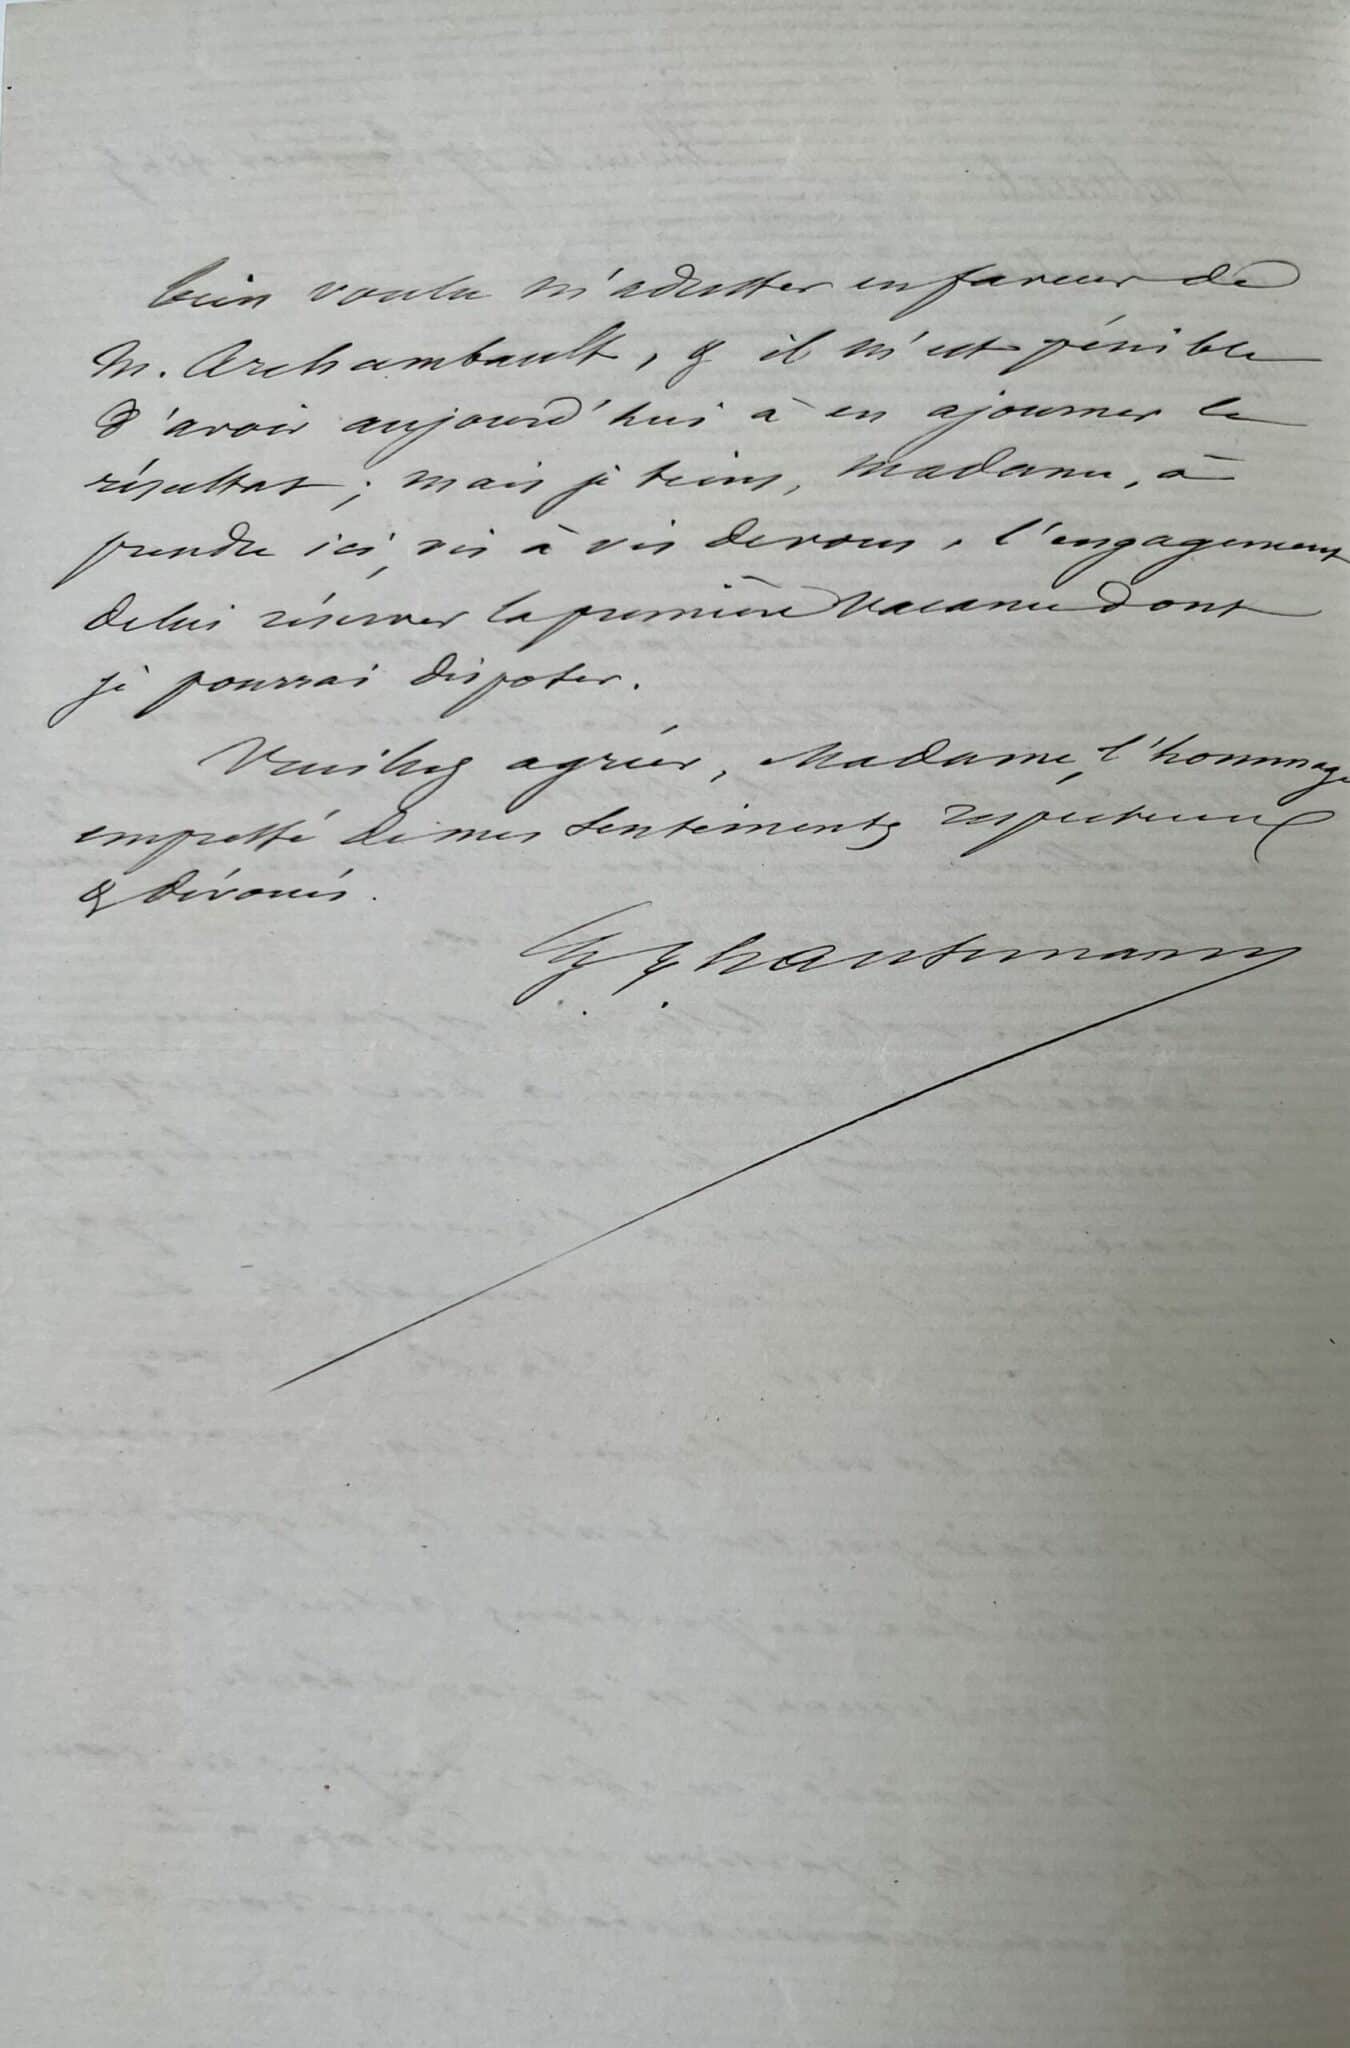 bien voulu m'adresser en faveur de
M. Archambault, & il m'est pénible
d'avoir aujourd'hui à en ajourner le
résultat ; mais je tiens, Madame, à
prendre ici, vis à vis de vous, l'engagement
de lui réserver la première vacance dont
je pourrai disposer.
Veuillez agréer, Madame, l'hommage
empressé de mes sentiments respectueux
& dévoués.
haussmann